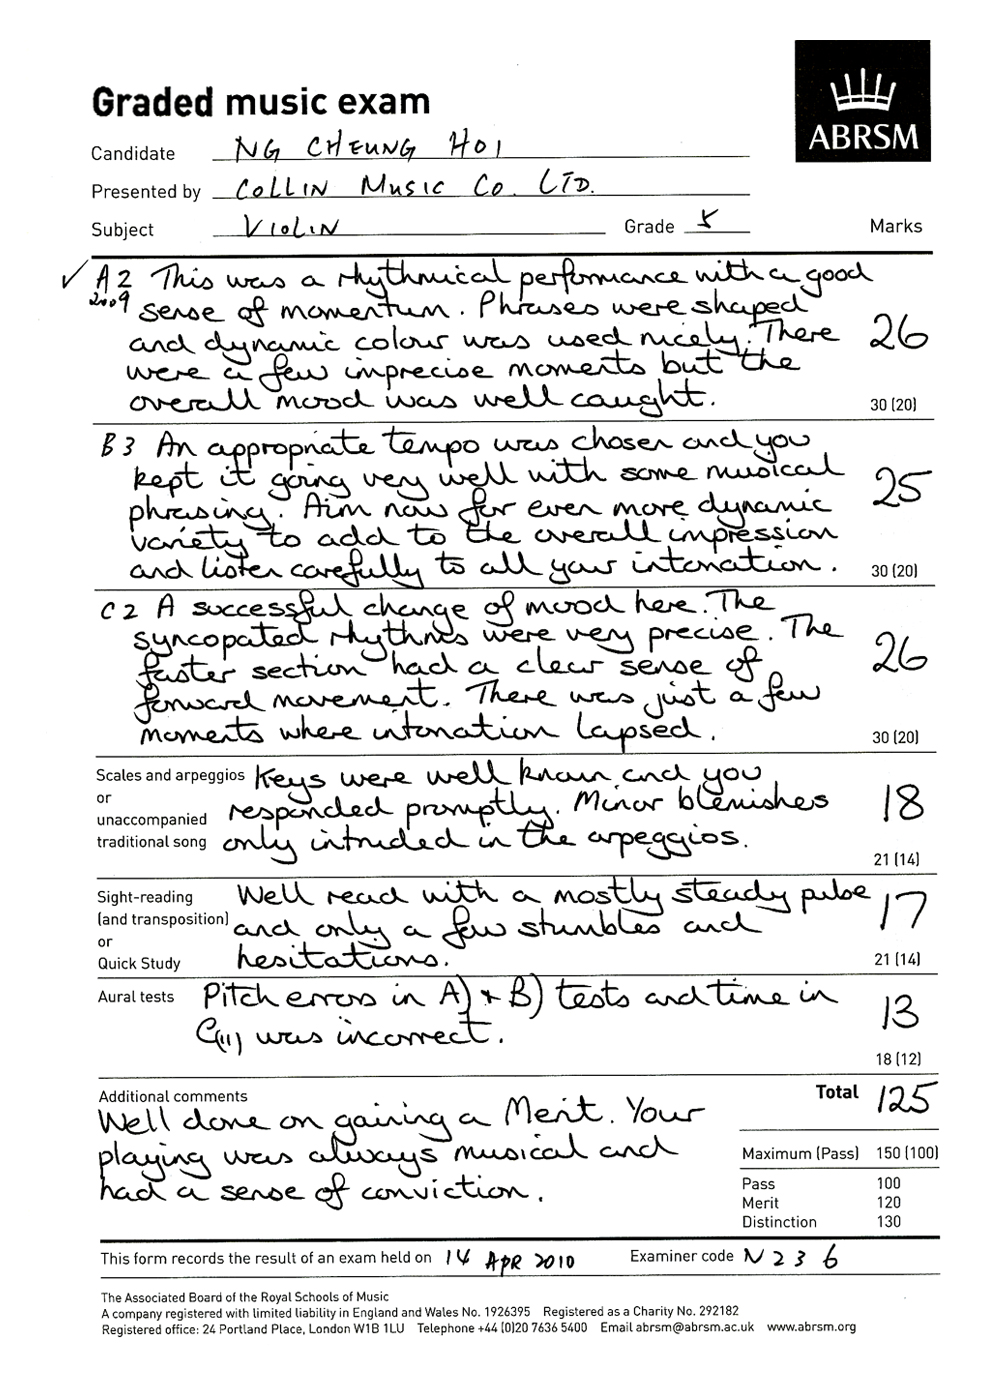 Graded music exam
ABRSM
Candidate NG CHEUNG HOI
Presented by COLLIN MUSIC CO. LTD.
Subject VIOLIN Grade 5 Marks
✓ A2 This was a rhythmical performance with a good
2009 sense of momentum. Phrases were shaped
and dynamic colour was used nicely. There 26
were a few imprecise moments but the
overall mood was well caught. 30 (20)
B3 An appropriate tempo was chosen and you
kept it going very well with some musical 25
phrasing. Aim now for even more dynamic
variety to add to the overall impression
and listen carefully to all your intonation. 30 (20)
C2 A successful change of mood here. The
syncopated rhythms were very precise. The
faster section had a clear sense of 26
forward movement. There was just a few
moments where intonation lapsed. 30 (20)
Scales and arpeggios Keys were well known and you
or
unaccompanied responded promptly. Minor blemishes 18
traditional song only intruded in the arpeggios.
21 (14)
Sight-reading Well read with a mostly steady pulse 17
(and transposition) and only a few stumbles and
or
Quick Study hesitations. 21 (14)
Aural tests Pitch errors in A) + B) tests and time in 13
C(ii) was incorrect.
18 (12)
Additional comments Total 125
Well done on gaining a Merit. Your
playing was always musical and Maximum (Pass) 150 (100)
had a sense of conviction. Pass 100
Merit 120
Distinction 130
This form records the result of an exam held on 14 APR 2010 Examiner code N236
The Associated Board of the Royal Schools of Music
A company registered with limited liability in England and Wales No. 1926395 Registered as a Charity No. 292182
Registered office: 24 Portland Place, London W1B 1LU Telephone +44 (0)20 7636 5400 Email abrsm@abrsm.ac.uk www.abrsm.org